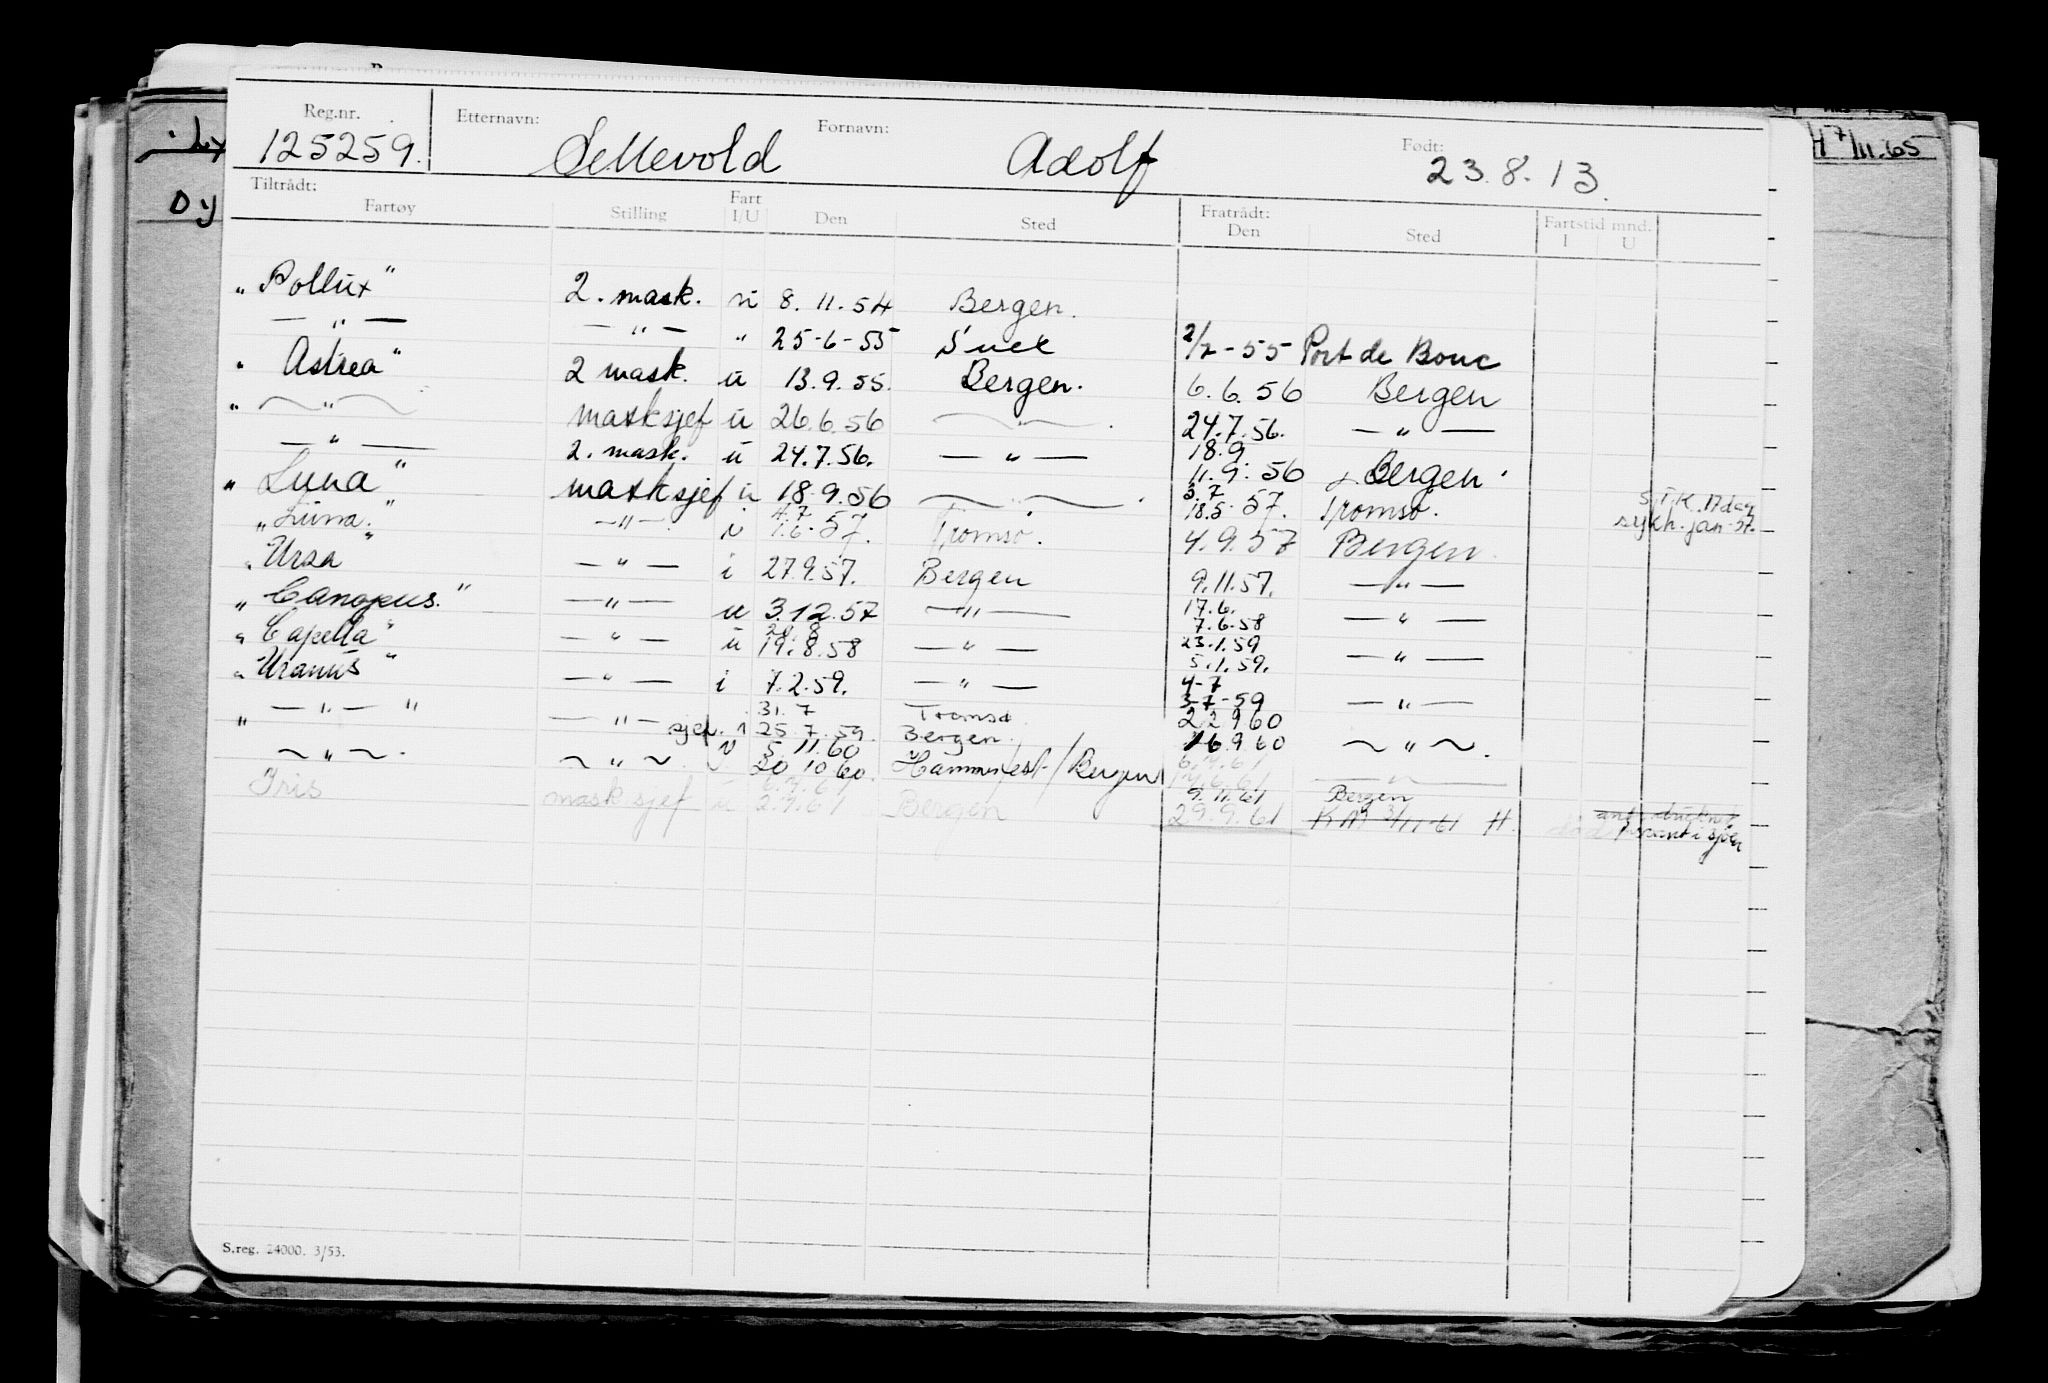 Reg.nr. Etternavn: Fornavn: Født:
125259. Sellevold Adolf 23.8.13.
Tiltrådt: Fratrådt: Fartstid mnd.
Fartøy Stilling Fart I/U Den Sted Den Sted I U
„Pollux" 2. mask. u 8.11.54 Bergen.
— " — — " — " 25-6-55 Suez 2/7-55 Port de Bouc
„Astrea" 2 mask. u 13.9.55. Bergen. 6.6.56 Bergen
„ — " — masksjef u 26.6.56 — " — . 24.7.56. — " —
— " — 2. mask. u 24.7.56. — " — 18.9
11.9.56 Bergen.
„Luna" masksjef u 18.9.56 — " — . 3.7
18.5.57. Tromsø. S.T.K. 17 dag
„Luna." — " — . i 4.7
1.6.57. Tromsø. 4.9.57 Bergen. sykh. jan-57.
„Ursa" — " — i 27.9.57. Bergen 9.11.57. — " —
„Canopus." — " — u 3.12.57 — " — 17.6.
7.6.58 — " —
„Capella" — " — u 28.8
19.8.58 — " — 23.1.59
5.1.59. — " —
„Uranus" — " — i 7.2.59. — " — 4-7
3-7-59 — " —
„ — " — " — " — sjef. i 31.7
25.7.59. Tromsø.
Bergen. 22 9 60
16.9 60 — " — .
— " — . — " — . U 5.11.60
20 10 60. Hammerfest/Bergen 6.7.61
— " —
Iris mask sjef u 2.9.61 Bergen 9.11.61
29.9.61 Bergen
H.
S.reg. 24000. 3/53.
7/11.65